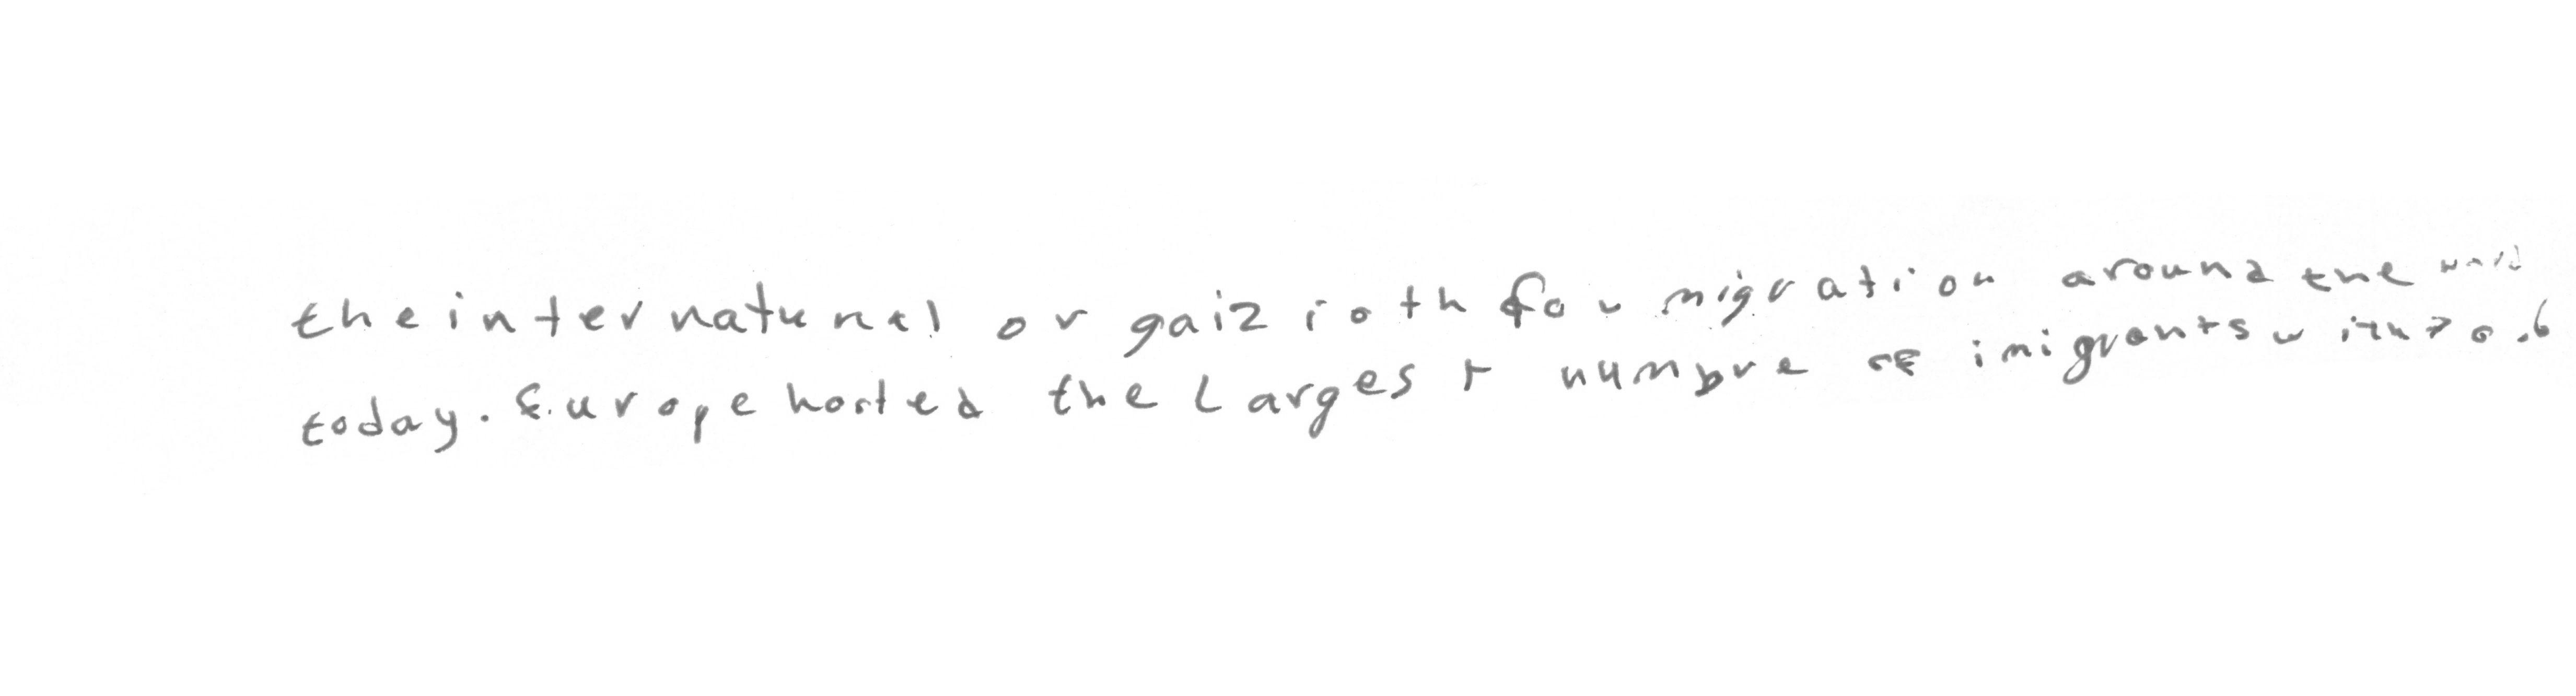 the internatunal orgaiz ioth for migration around the
today. Europe hosted the Largest numbre of imigrants with 70.6